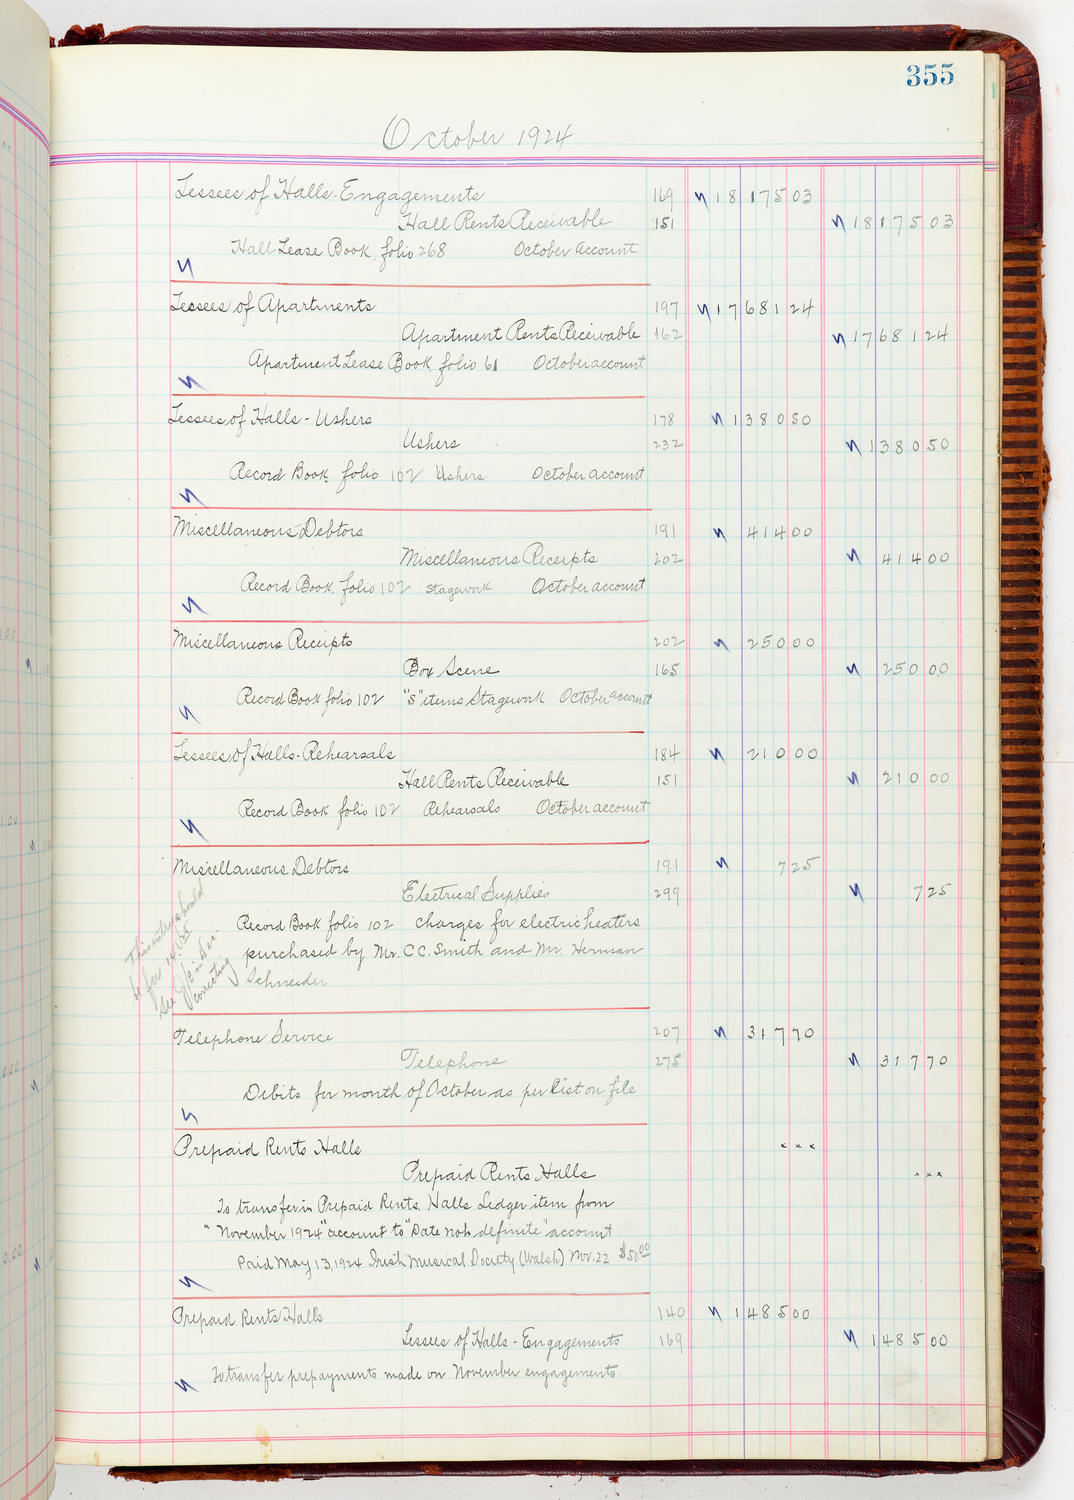 355
October 1924
Lessees of Halls-Engagements 169 18 175 03
Hall Rents Receivable 151 18 175 03
Hall Lease Book folio 268 October account
Lessees of Apartments 197 17 681 24
Apartment Rents Receivable 162 17 681 24
Apartment Lease Book folio 61 October account
Lessees of Halls - Ushers 178 1 380 50
Ushers 232 1 380 50
Record Book folio 102 Ushers October account
Miscellaneous Debtors 191 414 00
Miscellaneous Receipts 202 414 00
Record Book folio 102 stagework October account
Miscellaneous Receipts 202 250 00
Box Scene 165 250 00
Record Book folio 102 "S" items Stagework October account
Lessees of Halls-Rehearsals 184 210 00
Hall Rents Receivable 151 210 00
Record Book folio 102 Rehearsals October account
Miscellaneous Debtors 191 7 25
Electrical Supplies 299 7 25
Record Book folio 102 charges for electric heaters
purchased by Mr. C.C. Smith and Mr. Herman
Schneider
This entry should
be for 14.25
see J/E in Dec.
correcting
Telephone Service 207 317 70
Telephone 275 317 70
Debits for month of October as per list on file
Prepaid Rents Halls x x x
Prepaid Rents Halls x x x
To transfer in Prepaid Rents Halls Ledger item from
"November 1924" account to "Date not definite" account.
Paid May 13, 1924 Irish Musical Society (Walsh) Nov. 22 $50 00
Prepaid Rents Halls 140 1 485 00
Lessees of Halls - Engagements 169 1 485 00
To transfer prepayments made on November engagements.